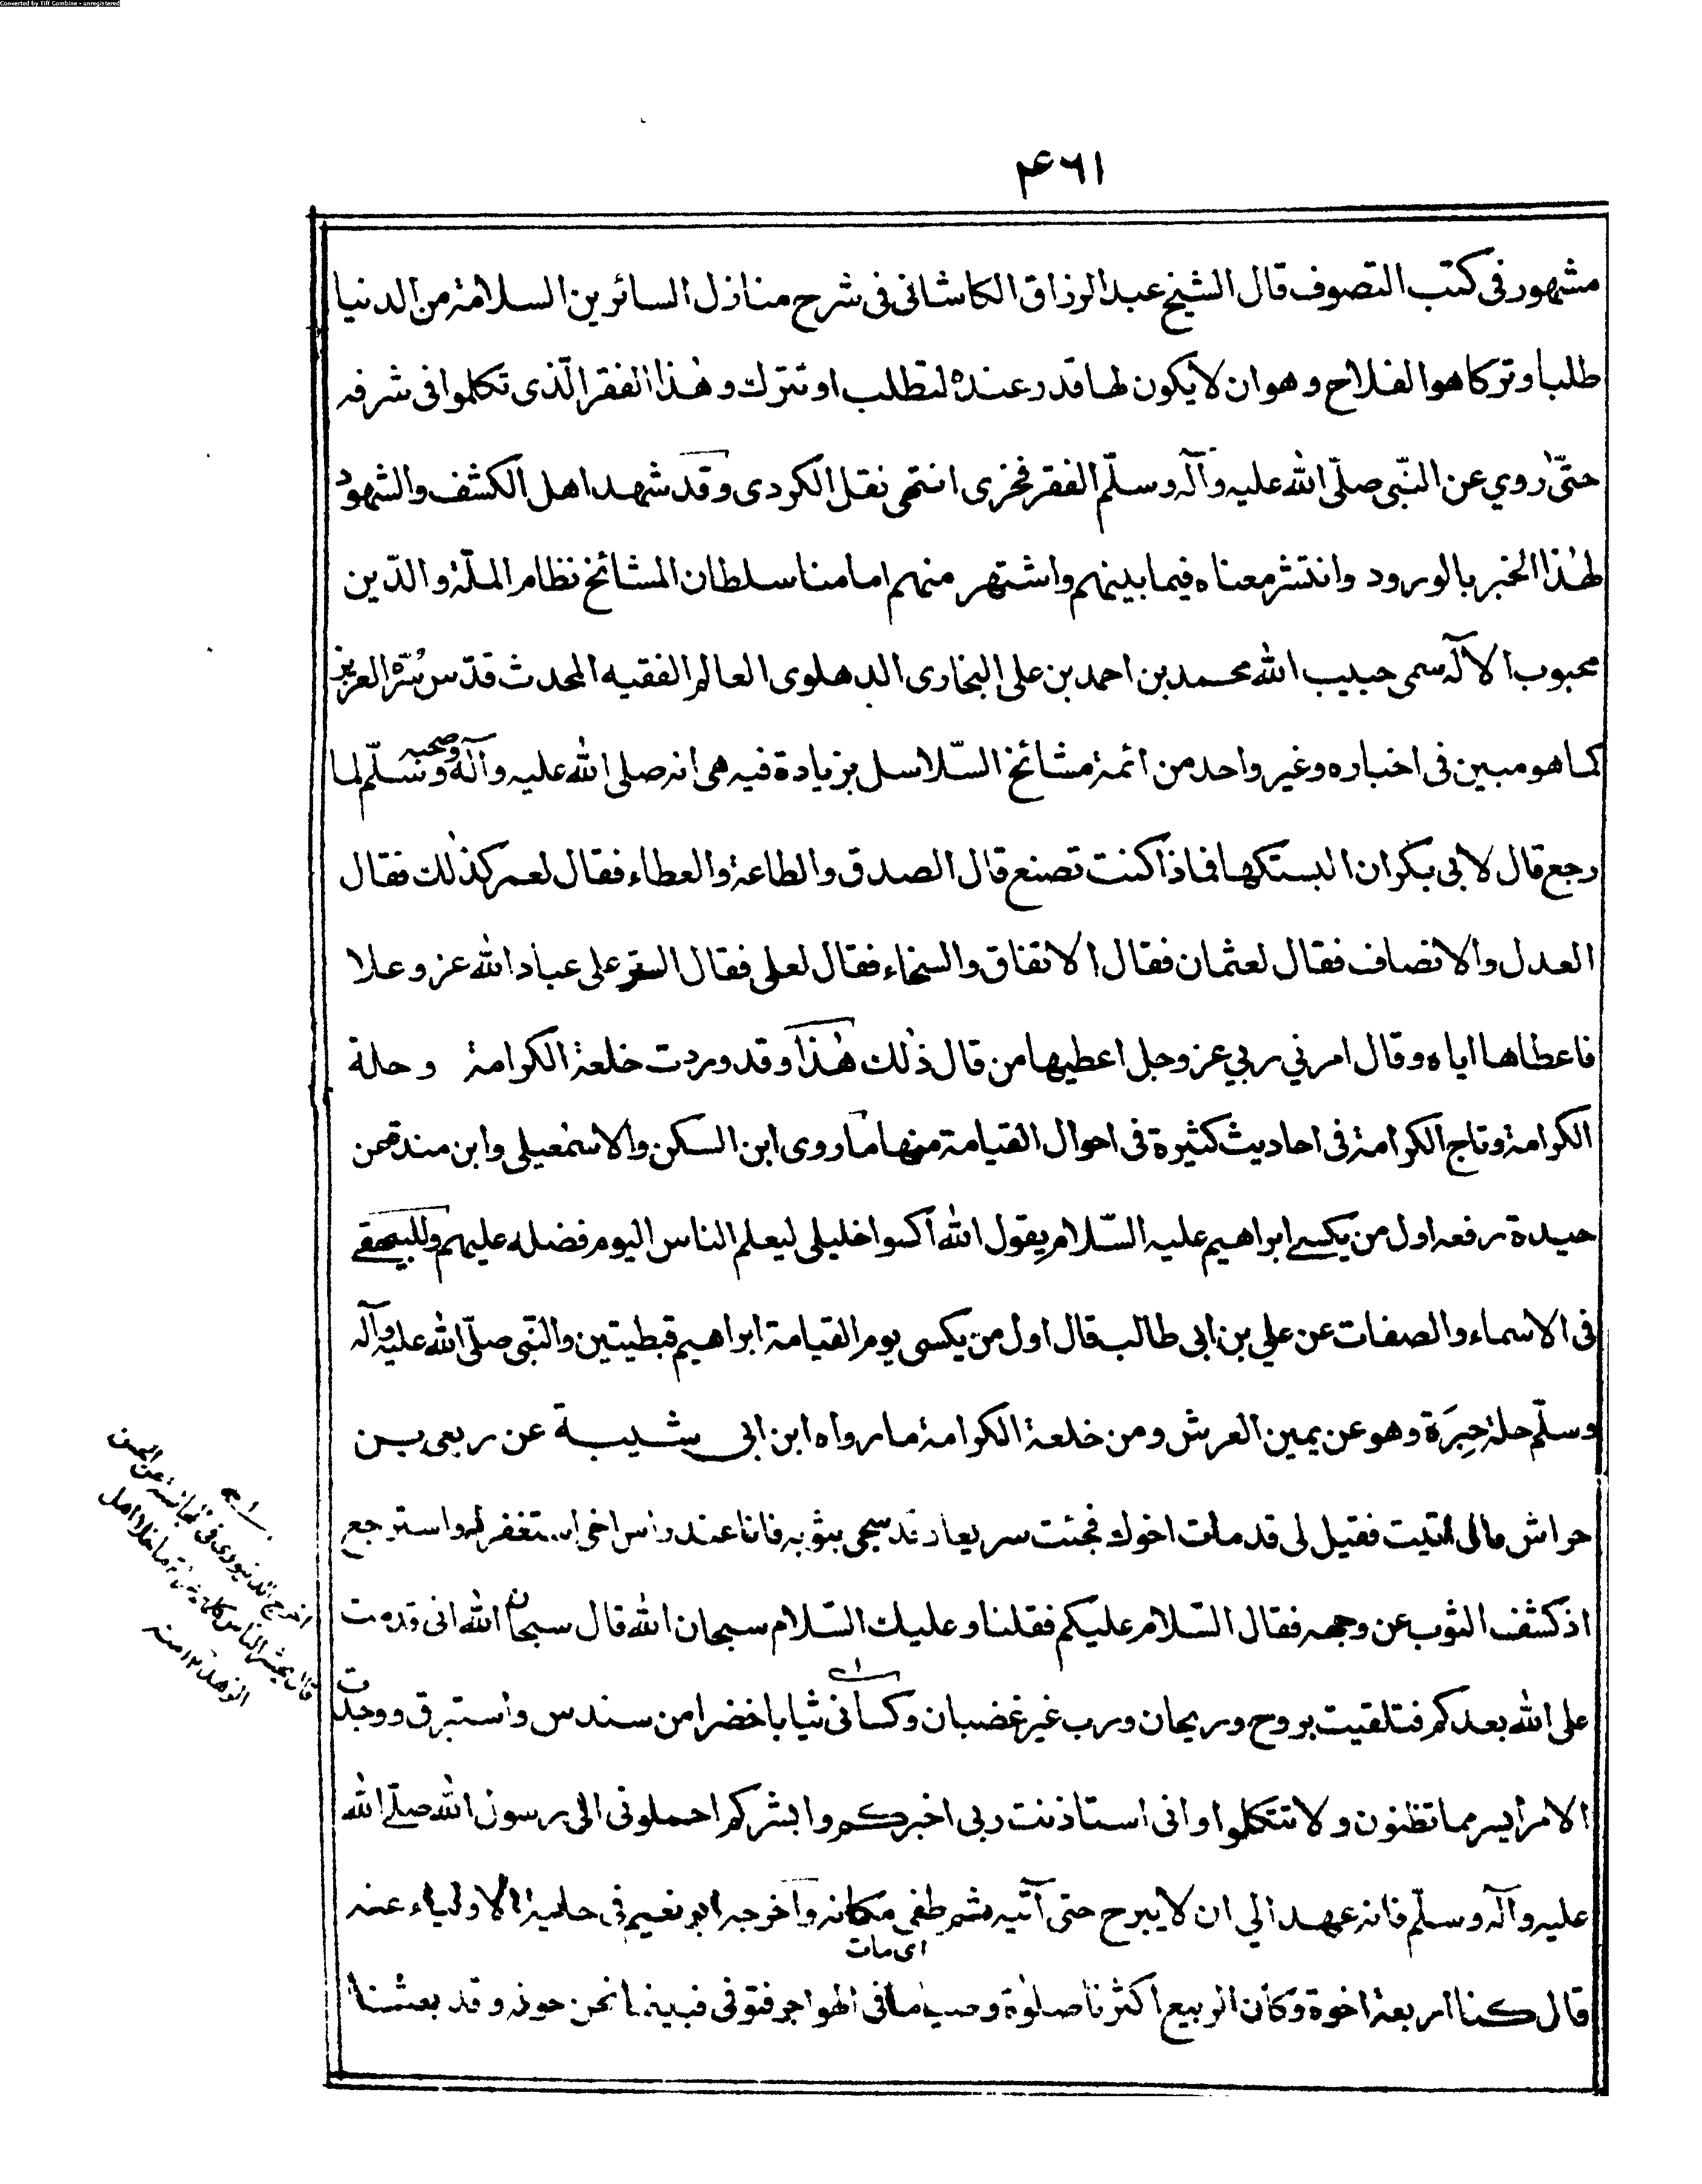 Converted by Tiff Combine - unregistered
۴۶۱
مشهور فى كتب التصوف قال الشيخ عبد الرزاق الكاشانى فى شرح منازل السائرين السلامة من الدنيا
طلبا وتركا هو الفلاح وهو ان لا يكون لها قدر عنده لتطلب او تترك وهٰذا الفقر الّذى تكلموا فى شرفه
حتّى روي عن النّبى صلّى الله عليه وآله وسلّم الفقر فخرى انتهى نقل الكردى وقد شهد اهل الكشف والشهود
لهٰذا الخبر بالورود وانتشر معناه فيما بينهم واشتهر منهم امامنا سلطان المشائخ نظام الملّة والدّين
محبوب الاله سمى حبيب الله محمد بن احمد بن على البخارى الدهلوى العالم الفقيه المحدث قدّس سُرّه العزيز
كما هو مبين فى اخباره وغير واحد من ائمة مشائخ السّلاسل بزيادة فيه هى انه صلى الله عليه وآله وصحبه وسلّم لما
رجع قال لابى بكر ان البستكها فماذا كنت تصنع قال الصدق والطاعة والعطاء فقال لعمر كذلك فقال
العدل والانصاف فقال لعثمان فقال الانفاق والسخاء فقال لعلى فقال الستر على عباد الله عز وعلا
فاعطاها اياه وقال امرني ربي عز وجل اعطيها من قال ذٰلك هٰذا وقد وردت خلعة الكرامة وحلة
الكرامة وتاج الكرامة فى احاديث كثيرة فى احوال القيامة منها ما روى ابن السكن والاسمٰعيلى وابن مندة عن
حيدة رفعه اول من يكسے ابراهيم عليه السّلام يقول الله اكسوا خليلى ليعلم الناس اليوم فضله عليهم وللبيهقے
فى الاسماء والصفات عن علي بن ابى طالب قال اول من يكسى يوم القيامة ابراهيم قبطيتين والنّبى صلّى الله عليه وآله
وسلّم حلة حِبَرَة وهو عن يمين العرش ومن خلعة الكرامة ما رواه ابن ابى شيبة عن ربعى بن
حراش قال اتيت فقيل لى قد مات اخوك فجئت سريعا وقد سجى بثوبه فانا عند راس اخى استغفر له واسترجع
اذ كشف الثوب عن وجهه فقال السّلام عليكم فقلنا وعليك السّلام سبحان الله قال سبحان الله انى قدمت
على الله بعدكم فتلقيت بروح وريحان ورب غير غضبان وكسانى ثيابا خضرا من سندس واستبرق ووجدت
الامر ايسر مما تظنون ولا تتكلوا وانى استاذنت ربى اخبركم وابشركم احملونى الى رسول الله صلّے الله
عليه وآله وسلّم فانه عهد الي ان لا يبرح حتى آتيه ثم طفى مكانه واخرجه ابو نعيم فى حلية الاولياء عنه
اى مات
قال كنا اربعة اخوة وكان الربيع اكثرنا صلوٰة وصياما فى الهواجر فتوفى فبينما نحن حوله وقد بعثنا
اخرج الدينورى فى المجالسة عن الحسن
قال يحشر الناس كلهم عراة ما خلا اهل
الزهد ۱۲ منه